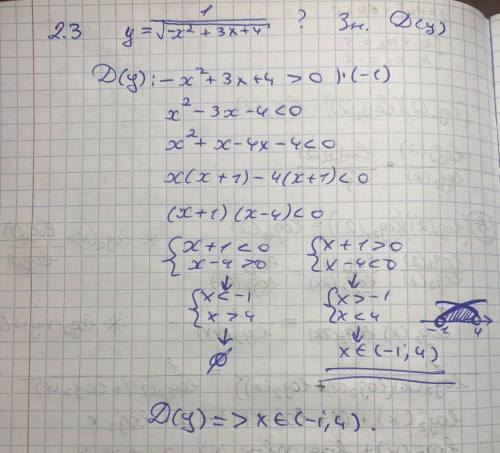 2.3 y = 1/√(-x² + 3x + 4) ? Зн. D(y)
D(y): -x² + 3x + 4 > 0 ) · (-1)
x² - 3x - 4 < 0
x² + x - 4x - 4 < 0
x(x + 1) - 4(x + 1) < 0
(x + 1)(x - 4) < 0
{x + 1 < 0 {x + 1 > 0
{x - 4 > 0 {x - 4 < 0
↓ ↓
{x < -1 {x > -1
{x > 4 {x < 4
-1 4 x
↓ ↓
∅ x ∈ (-1, 4)
D(y) => x ∈ (-1, 4).